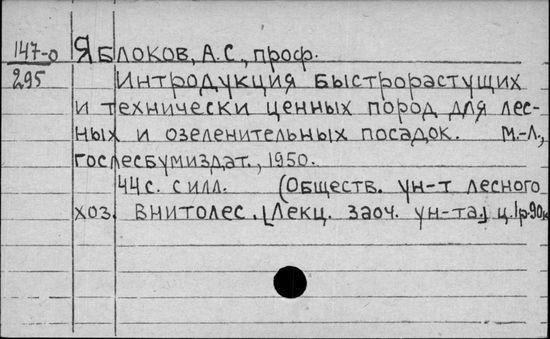 147-о
295
Яблоков, А.С., проф.
Интродукция быстрорастущих
и технически ценных пород для лес-
ных и озеленительных посадок. М.-Л.,
Гослесбумиздат., 1950.
44 с. с илл. (Обществ. ун-т лесного
хоз. ВНИТОлес. [Лекц. заоч. ун-та.] ц. 1р.90к